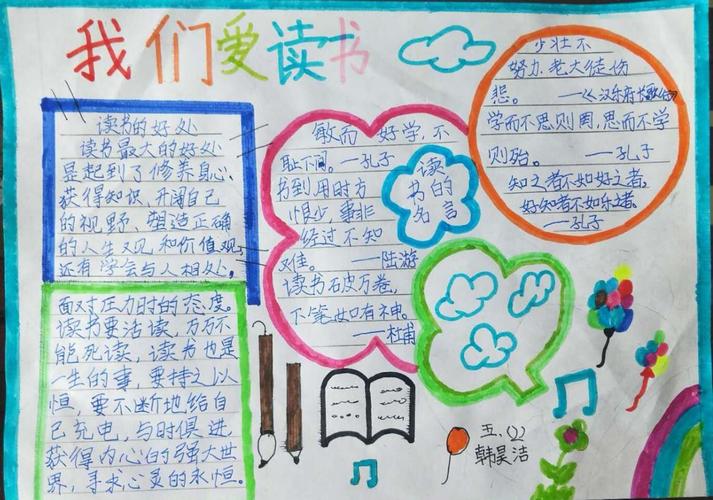 我们爱读书
读书的好处
读书最大的好处
是起到了修养身心
获得知识，开阔自己
的视野、塑造正确
的人生观和价值观，
还有学会与人相处。
面对压力时的态度。
读书要活读，万万不
能死读，读书也是
一生的事，要持之以
恒，要不断地给自
己充电，与时俱进，
获得内心的强大世
界，寻求心灵的永恒。
敏而好学，不
耻下问。——孔子
书到用时方
恨少，事非
经过不知
难。——陆游
读书破万卷，
下笔如有神。
——杜甫
读
书的
名言
少壮不
努力，老大徒伤
悲。——《汉乐府长歌行》
学而不思则罔，思而不学
则殆。——孔子
知之者不如好之者，
好知者不如乐之者。
——孔子
五.(2)
韩昊洁